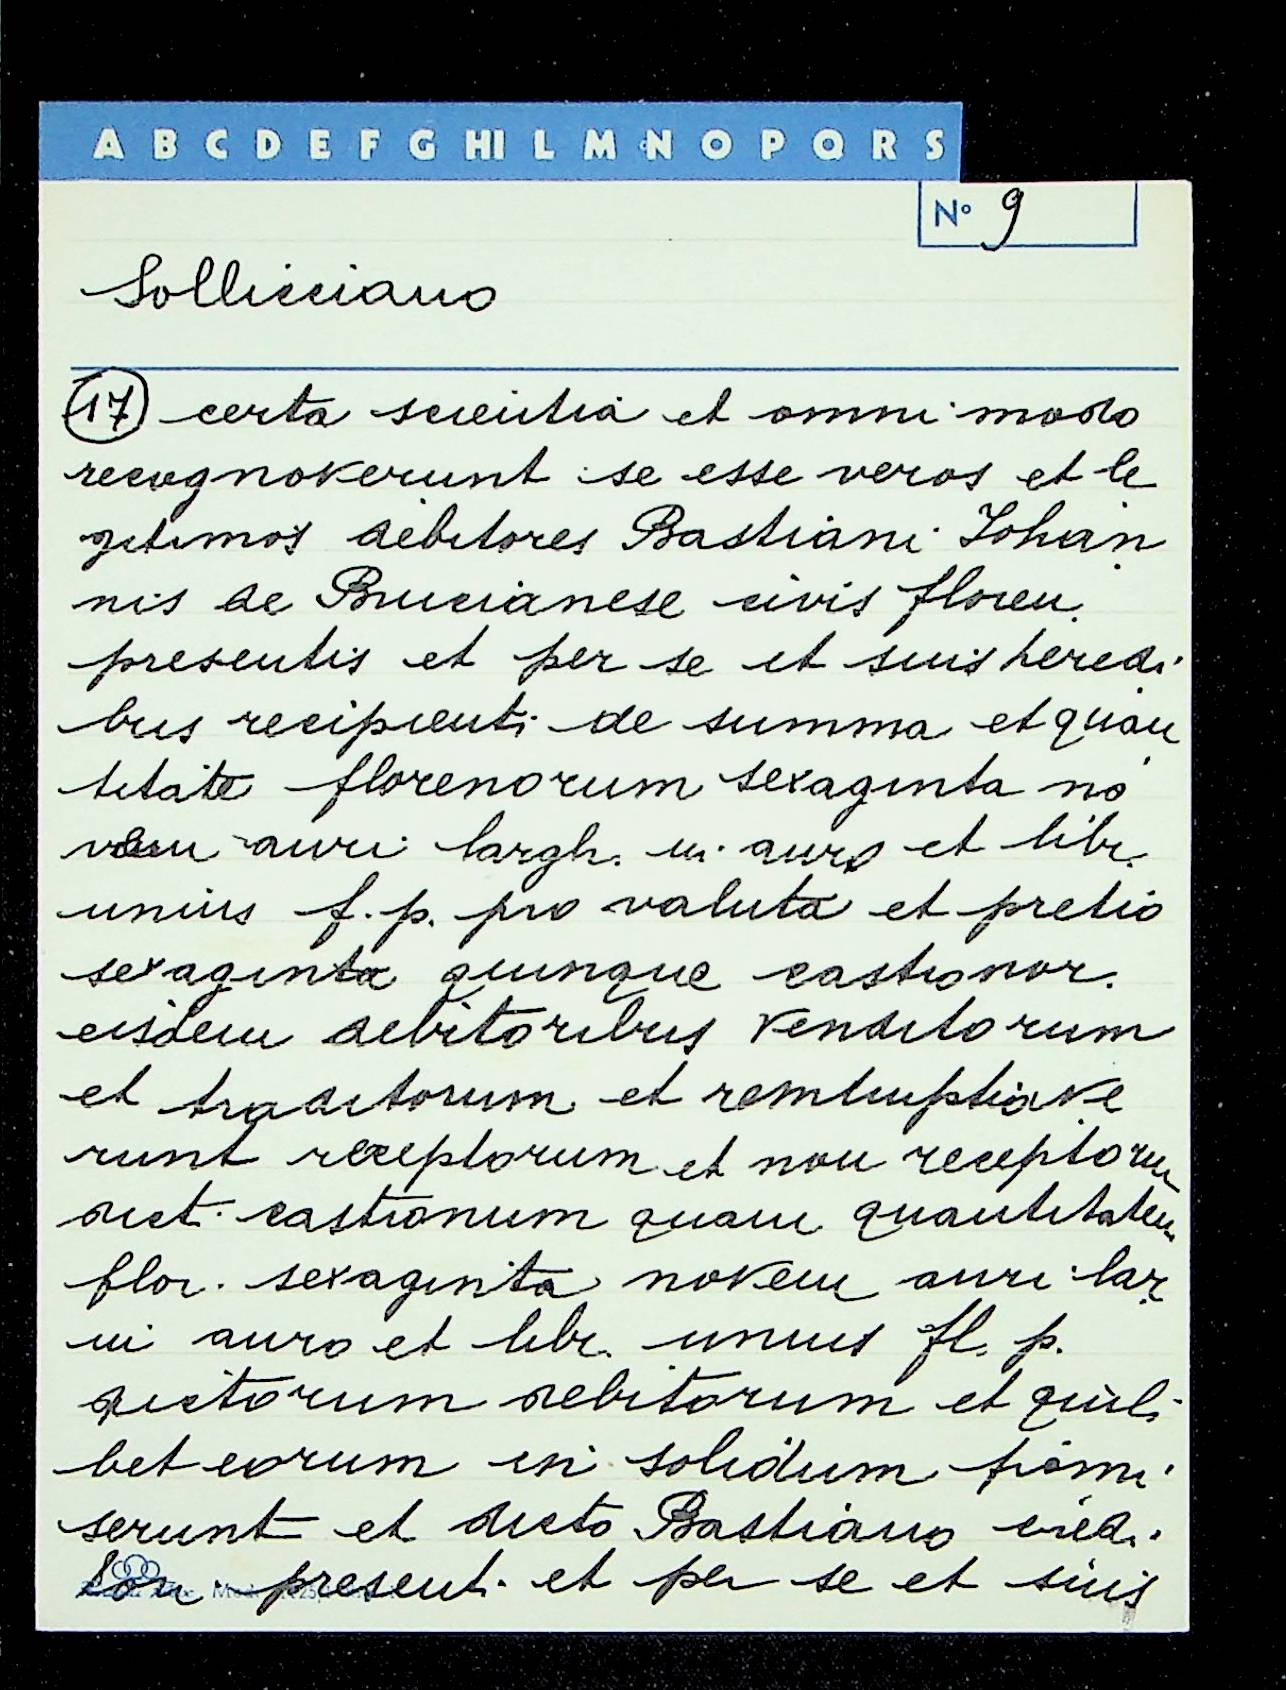 A B C D E F G HI L M N O P Q R S
Nº 9
Sollicciano
17 certa scientia et omni modo
recognoverunt se esse veros et le
gitimos debitores Bastiani Johan
nis de Brucianese civis floren.
presentis et per se et suis heredi
bus recipienti de summa et quan
titate florenorum sexaginta no
vem auri largh. in auro et libr.
unius f. p. pro valuta et pretio
sexaginta quinque castronor.
eisdem debitoribus venditorum
et traditorum et renuntiave
runt receptorum et non receptorum
dict. castronum quam quantitatem
flor. sexaginta novem auri lar
in auro et libr. unius fl. p.
dictorum debitorum et quili
bet eorum in solidum promi
serunt et dicto Bastiano credi
tori present. et per se et suis